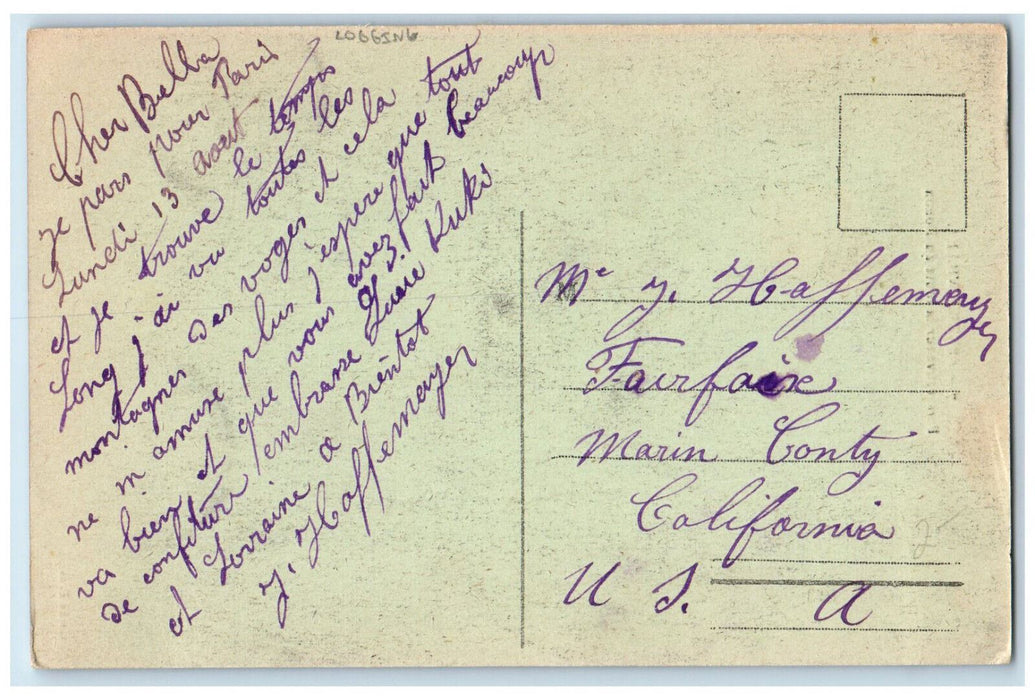 LODGING
Cher Bella
je pars pour Paris
Lundi 13 aout
et je trouve le temps
Long j'ai vu toutes les
montagnes des voges et cela
ne m amuse plus j'espere que tout
va bien et que vous avez fait beaucoup
de confiture j'embrasse Kuki
et Lorraine a Bientot
J. Haffemayer
Mr J. Haffemayer
Fairfaix
Marin Conty
California
U S. A